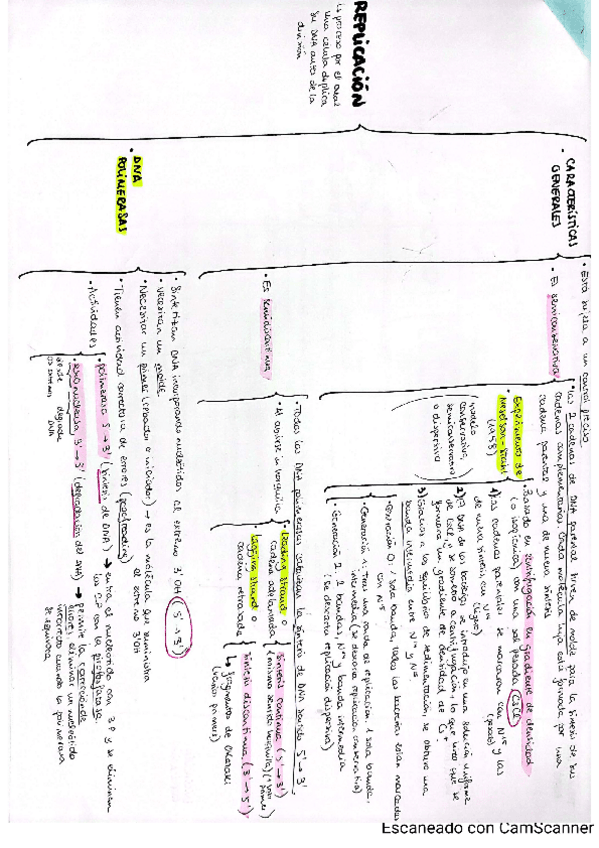 REPLICACIÓN
Es proceso por el cual
una célula duplica
su DNA antes de la
división
• CARACTERÍSTICAS
GENERALES
• Está sujeta a un control preciso
• Es semiconservativa
• Las 2 cadenas de DNA parental sirven de molde para la síntesis de
cadenas complementarias. Cada molécula hija está formada por una
cadena parental y una de nueva síntesis
• Experimento de
Meselson-Stahl
(1958)
(modelo
conservativo,
semiconservativo
o dispersivo)
• Basado en centrifugación en gradiente de densidad
(o isopícnica) con una sal pesada (CsCl)
1) Las cadenas parentales se marcaron con N15 (pesado) y las
de nueva síntesis, con N14 (ligero)
2) El DNA de las bacterias se introdujo en una solución uniforme
de CsCl y se sometió a centrifugación, lo que hizo que se
formara un gradiente de densidad de Cs+
3) Gracias a los equilibrio de sedimentación, se obtuvo una
banda intermedia entre N14 y N15
• Generación 0: Una banda, todas las bacterias están marcadas
con N15
• Generación 1: Tras una ronda de replicación, 1 sola banda,
intermedia (se descarta replicación conservativa)
• Generación 2: 2 bandas, N14 y banda intermedia
(se descarta replicación dispersiva)
• Es semidiscontinua
• Todas las DNA polimerasas catalizan la síntesis de DNA sentido 5' → 3'
• Al abrirse la horquilla
• Leading strand o
cadena adelantada
síntesis continua (5' → 3')
(mismo sentido horquilla) (1 solo primer)
• Lagging strand o
cadena retrasada
síntesis discontinua (3' → 5')
↳ fragmentos de Okazaki
(varios primers)
• DNA
POLIMERASAS
• Sintetizan DNA incorporando nucleótidos al extremo 3'OH (5' → 3')
• Necesitan un molde
• Necesitan un primer (cebador o iniciador) → es la molécula que suministra
el extremo 3'OH
• Tienen actividad correctora de errores (proofreading)
• Actividades
• polimerasa 5' → 3' (síntesis de DNA) → entra el nucleótido con 3 P y se eliminan
los 2 P con la pirofosfatasa
• exonucleasa 3' → 5' (degradación del DNA) → permite la corrección de
errores, eliminar un nucleótido
incorrecto cuando la polimerasa
se equivoca
degrada
DNA
Escaneado con CamScanner